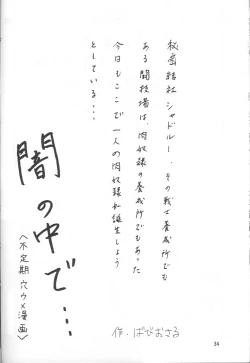 秘密結社シャドルー．その戦士養成所でも
ある闘技場は、肉奴隷の養成所でもあった
今日もここで一人の肉奴隷が誕生しよう
としている・・・
闇の中で・・・
〈不定期穴ウメ漫画〉
作・ぱぴおさる
34